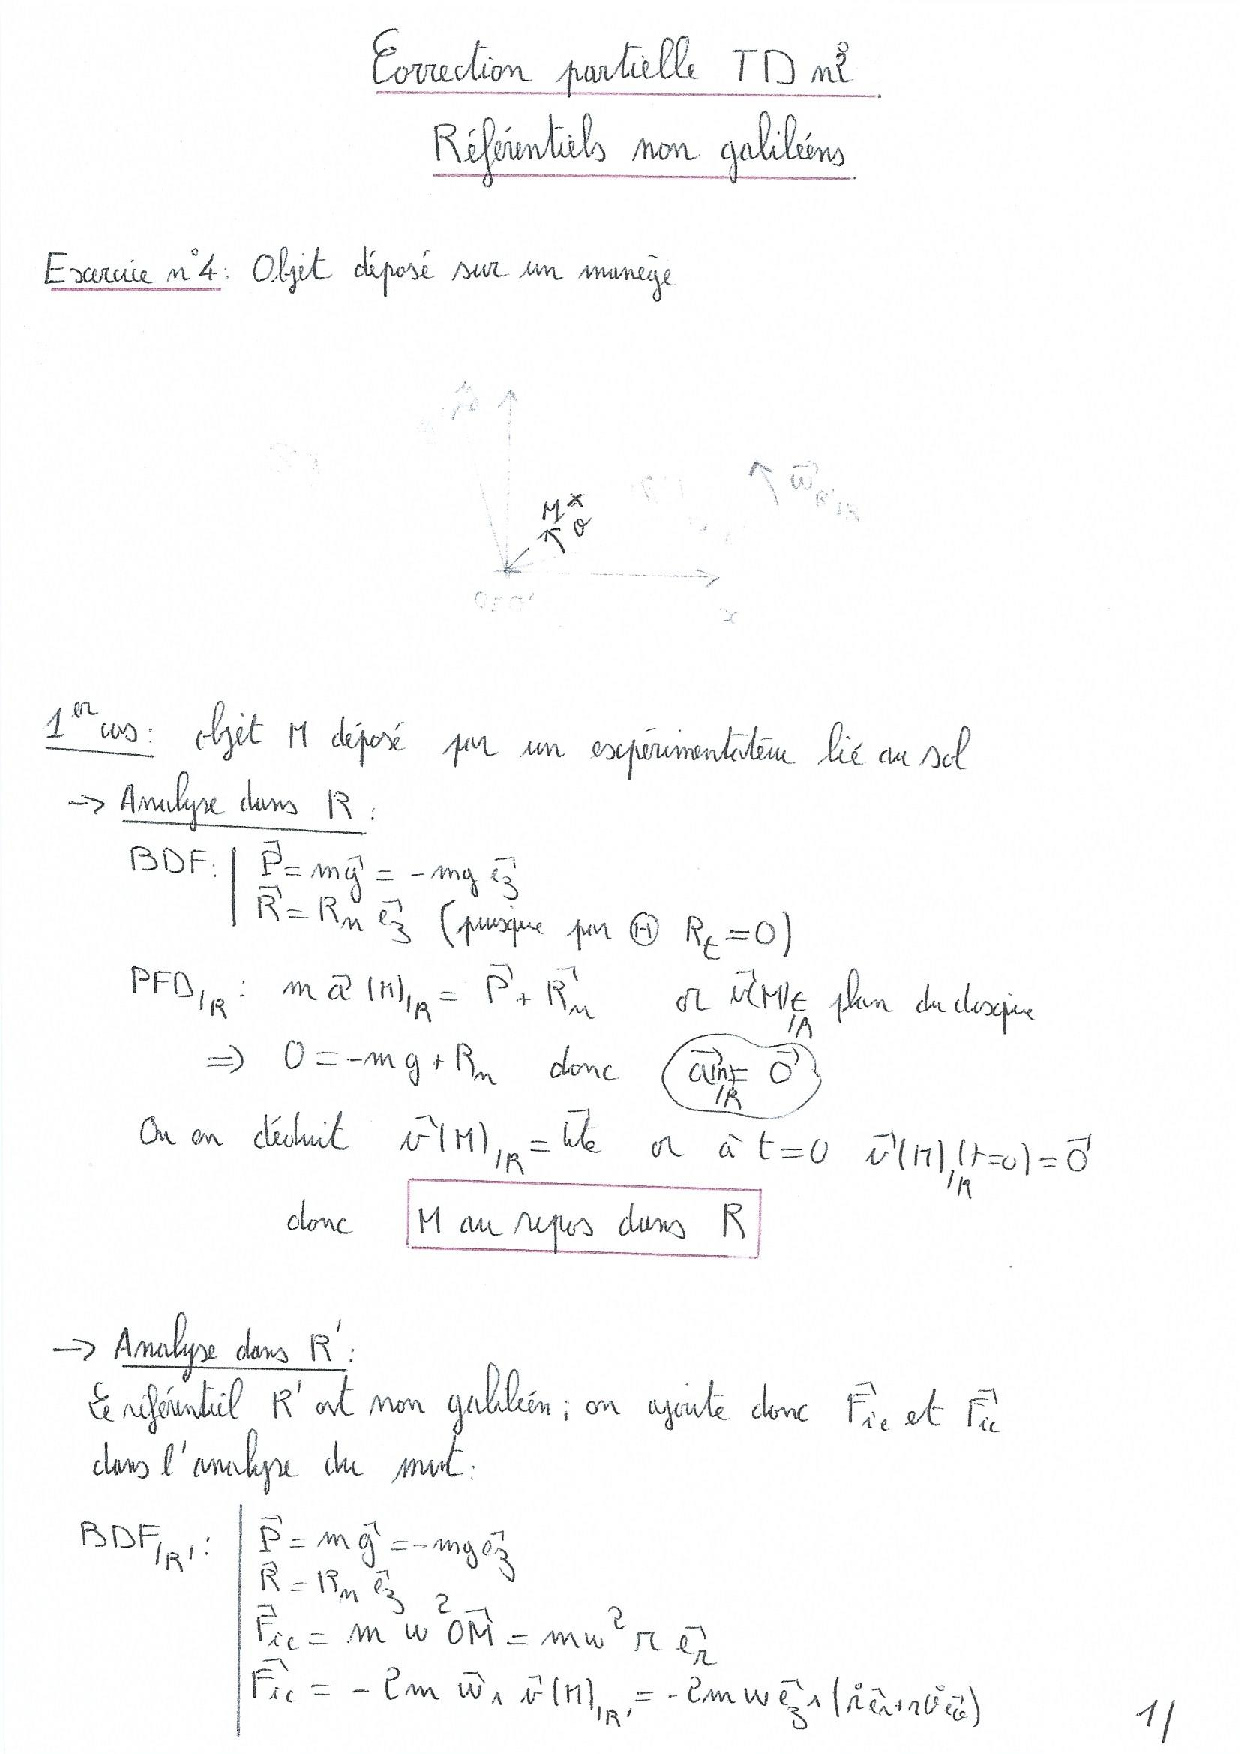 Correction partielle TD n°2
Référentiels non galiléens
Exercice n°4: Objet déposé sur un manège
M
θ
O=O'
x
ω⃗ R'/R
1er cas: objet M déposé par un expérimentateur lié au sol
-> Analyse dans R:
BDF: P⃗ = mg⃗ = -mg e⃗z
R⃗ = Rn e⃗z (puisque par Ⓗ Rt = 0)
PFD/R: m a⃗(M)/R = P⃗ + R⃗n or v⃗(M)/R ∈ plan du disque
=> 0 = -mg + Rn donc a⃗(M)/R = 0⃗
On en déduit v⃗(M)/R = c⃗te or à t=0 v⃗(M)/R (t=0) = 0⃗
donc M au repos dans R
-> Analyse dans R':
Le référentiel R' est non galiléen; on ajoute donc F⃗ie et F⃗ic
dans l'analyse du mvt.
BDF/R': P⃗ = mg⃗ = -mg e⃗z
R⃗ = Rn e⃗z
F⃗ie = m ω² OM⃗ = mω² r e⃗r
F⃗ic = -2m ω⃗ ∧ v⃗(M)/R' = -2mω e⃗z ∧ (ṙ e⃗r + rθ̇ e⃗θ)
1/